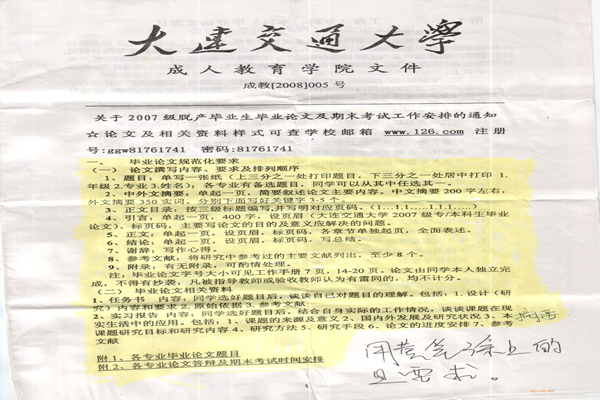 大连交通大学
成人教育学院文件
成教[2008]005 号
关于 2007 级脱产毕业生毕业论文及期末考试工作安排的通知
☆论文及相关资料样式可查学校邮箱 www.126.com 注册
号:ggw81761741 密码:81761741
一、 毕业论文规范化要求
(一) 论文撰写内容、要求及排列顺序
1、题目:单写一张纸(上三分之一处打印题目,下三分之一处居中打印 1.
年级 2.专业 3.姓名);各专业有备选题目,同学可以从其中任选其一。
2、中外文摘要:单起一页,简要叙述论文主要内容。中文摘要 200 字左右,
外文摘要 350 实词。分别下面写好关键字 3-5 个。
3、正文目录:按三级标题编写,并写明对应页码。(1...1.1....1.1.1....)
4、引言:单起一页,400 字,设页眉(大连交通大学 2007 级专/本科生毕业
论文)、标页码,主要写论文的目的及意义应解决的问题。
5、正文:单起一页,设页眉,标页码,各章节单独起页,全面表述。
6、结论:单起一页,设页眉,标页码,写总结。
7、谢辞:写作心得。
8、参考文献:将研究中参考过的主要文献列出,至少 8 个。
9、附录:有无附录,可酌情处理。
注:毕业论文字号大小可见工作手册 7 页,14-20 页。论文由同学本人独立完
成,不得有抄袭,凡被指导教师或验收教师认为有雷同的,均不计分。
(二) 毕业论文相关资料
1、任务书 内容:同学选好题目后,谈谈自己对题目的理解。包括:1.设计(研
究)内容和要求 2.原始依据 3.参考文献
2、实习报告 内容:同学选好题目后,结合自身实际的工作情况,谈谈课题在现
实生活中的应用。包括:1、课题的来源及意义 2、国内外发展及研究状况 3、本
课题研究目标和研究内容 4、研究方法 5、研究手段 6、论文的进度安排 7、参考
文献
附 1、各专业毕业论文题目
附 2、各专业论文答辩及期末考试时间安排
的